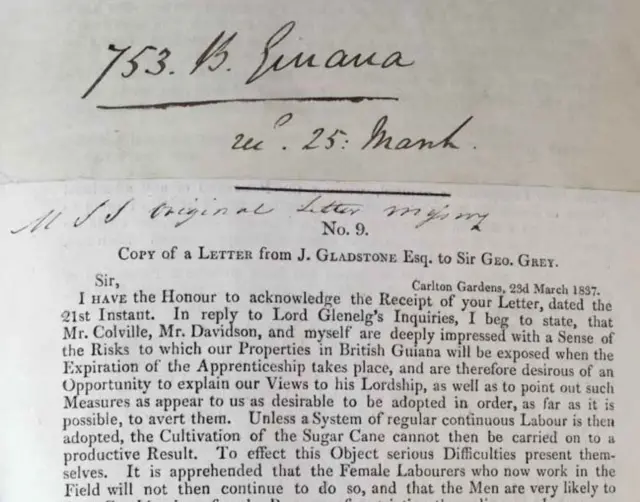 753. B. Guiana
recd. 25: March.
MSS original letter missing
No. 9.
COPY of a LETTER from J. GLADSTONE Esq. to Sir GEO. GREY.
Sir,
Carlton Gardens, 23d March 1837.
I HAVE the Honour to acknowledge the Receipt of your Letter, dated the
21st Instant. In reply to Lord Glenelg's Inquiries, I beg to state, that
Mr. Colville, Mr. Davidson, and myself are deeply impressed with a Sense of
the Risks to which our Properties in British Guiana will be exposed when the
Expiration of the Apprenticeship takes place, and are therefore desirous of an
Opportunity to explain our Views to his Lordship, as well as to point out such
Measures as appear to us as desirable to be adopted in order, as far as it is
possible, to avert them. Unless a System of regular continuous Labour is then
adopted, the Cultivation of the Sugar Cane cannot then be carried on to a
productive Result. To effect this Object serious Difficulties present them-
selves. It is apprehended that the Female Labourers who now work in the
Field will not then continue to do so, and that the Men are very likely to